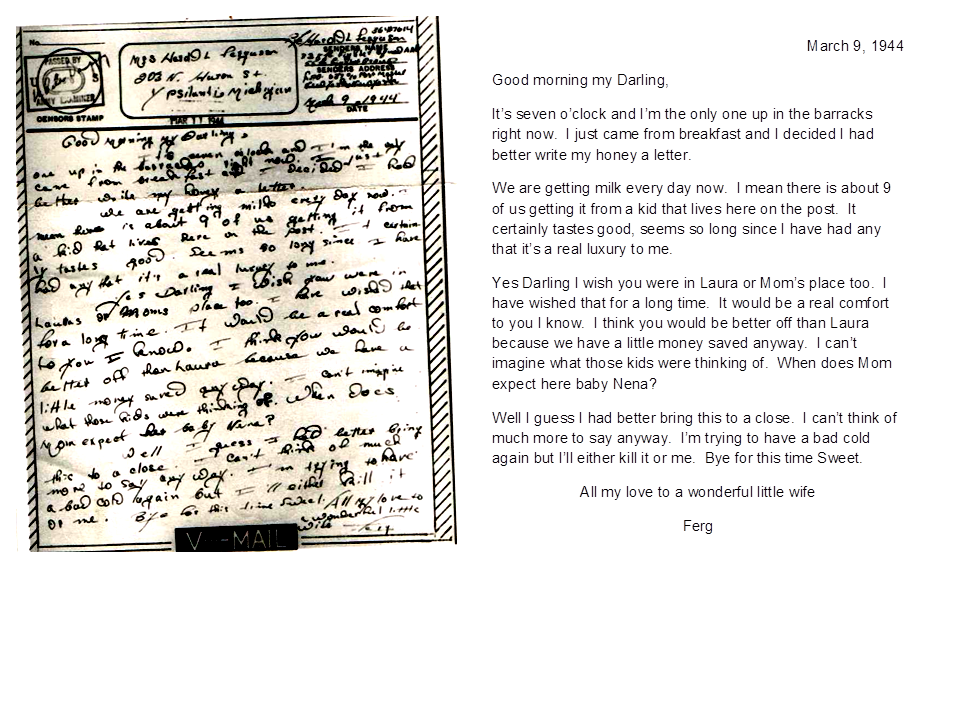 No.
PASSED BY
U S
ARMY EXAMINER
CENSORS STAMP
Mrs Harold L Ferguson
203 N. Huron St.
Ypsilanti Michigan
MAR 11 1944
Harold L Ferguson 36487014
SENDERS NAME
SENDERS ADDRESS
March 9, 1944
DATE
Good Morning my Darling,
It's seven o'clock and I'm the only
one up in the barracks right now. I just
came from breakfast and I decided I had
better write my honey a letter.
We are getting milk every day now. I
mean there is about 9 of us getting it from
a kid that lives here on the post. It certain-
ly tastes good. Seems so long since I have
had any that it's a real luxury to me.
Yes Darling I wish you were in
Lauras or Moms place too. I have wished that
for a long time. It would be a real comfort
to you I know. I think you would be
better off than Laura because we have a
little money saved anyway. I can't imagine
what those kids were thinking of. When does
Mom expect her baby Nena?
Well I guess I had better bring
this to a close. I can't think of much
more to say any way. I'm trying to have
a bad cold again but I'll either kill it
or me. Bye for this time Sweet. All my love to
a wonderful little
wife Ferg
V-MAIL
March 9, 1944
Good morning my Darling,
It's seven o'clock and I'm the only one up in the barracks
right now. I just came from breakfast and I decided I had
better write my honey a letter.
We are getting milk every day now. I mean there is about 9
of us getting it from a kid that lives here on the post. It
certainly tastes good, seems so long since I have had any
that it's a real luxury to me.
Yes Darling I wish you were in Laura or Mom's place too. I
have wished that for a long time. It would be a real comfort
to you I know. I think you would be better off than Laura
because we have a little money saved anyway. I can't
imagine what those kids were thinking of. When does Mom
expect here baby Nena?
Well I guess I had better bring this to a close. I can't think of
much more to say anyway. I'm trying to have a bad cold
again but I'll either kill it or me. Bye for this time Sweet.
All my love to a wonderful little wife
Ferg